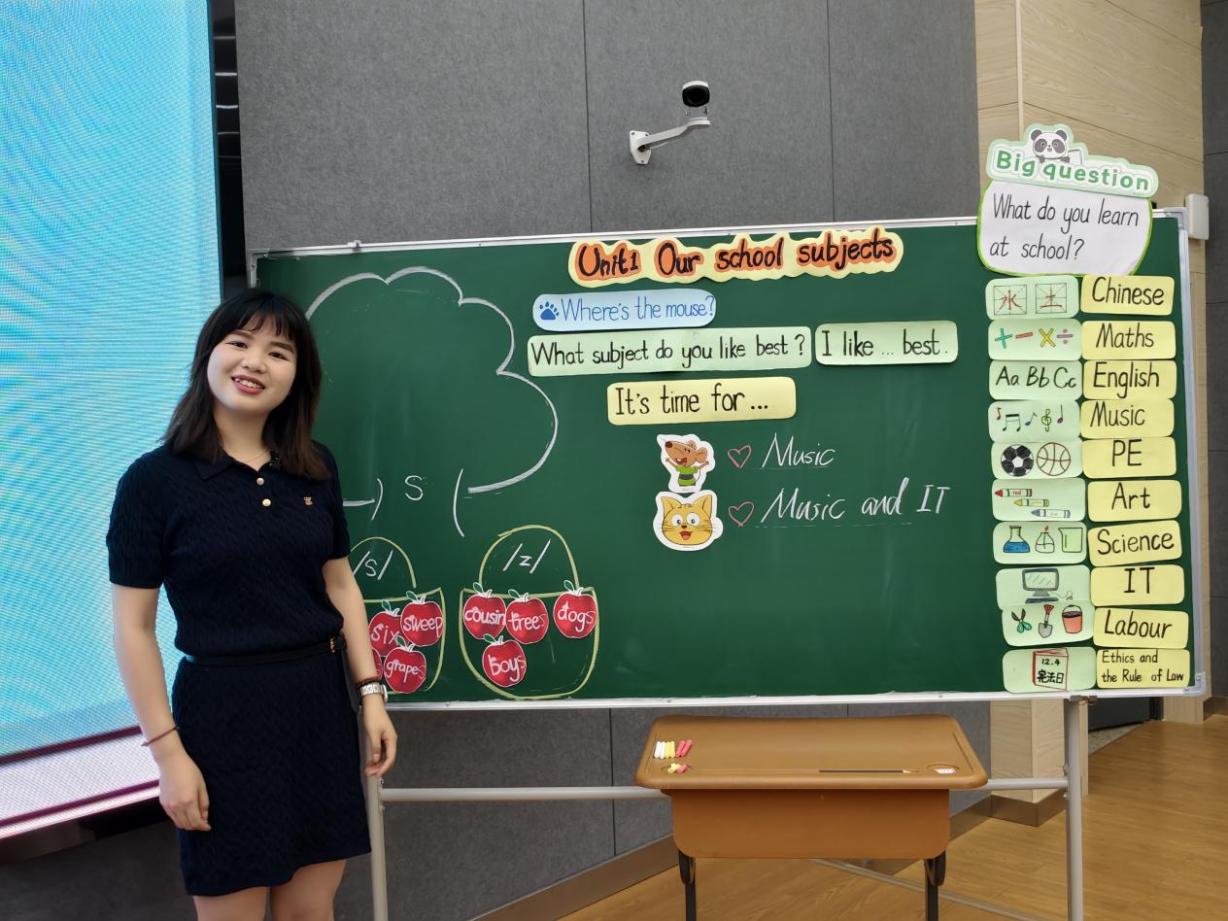 Big question
What do you learn
at school?
Unit1 Our school subjects
Where's the mouse?
What subject do you like best?
I like ... best.
It's time for ...
Music
Music and IT
S
/s/
six
sweep
grape
/z/
cousin
trees
dogs
boys
水 土
Chinese
+ - × ÷
Maths
Aa Bb Cc
English
Music
PE
Art
Science
IT
Labour
12.4
宪法日
Ethics and
the Rule of Law